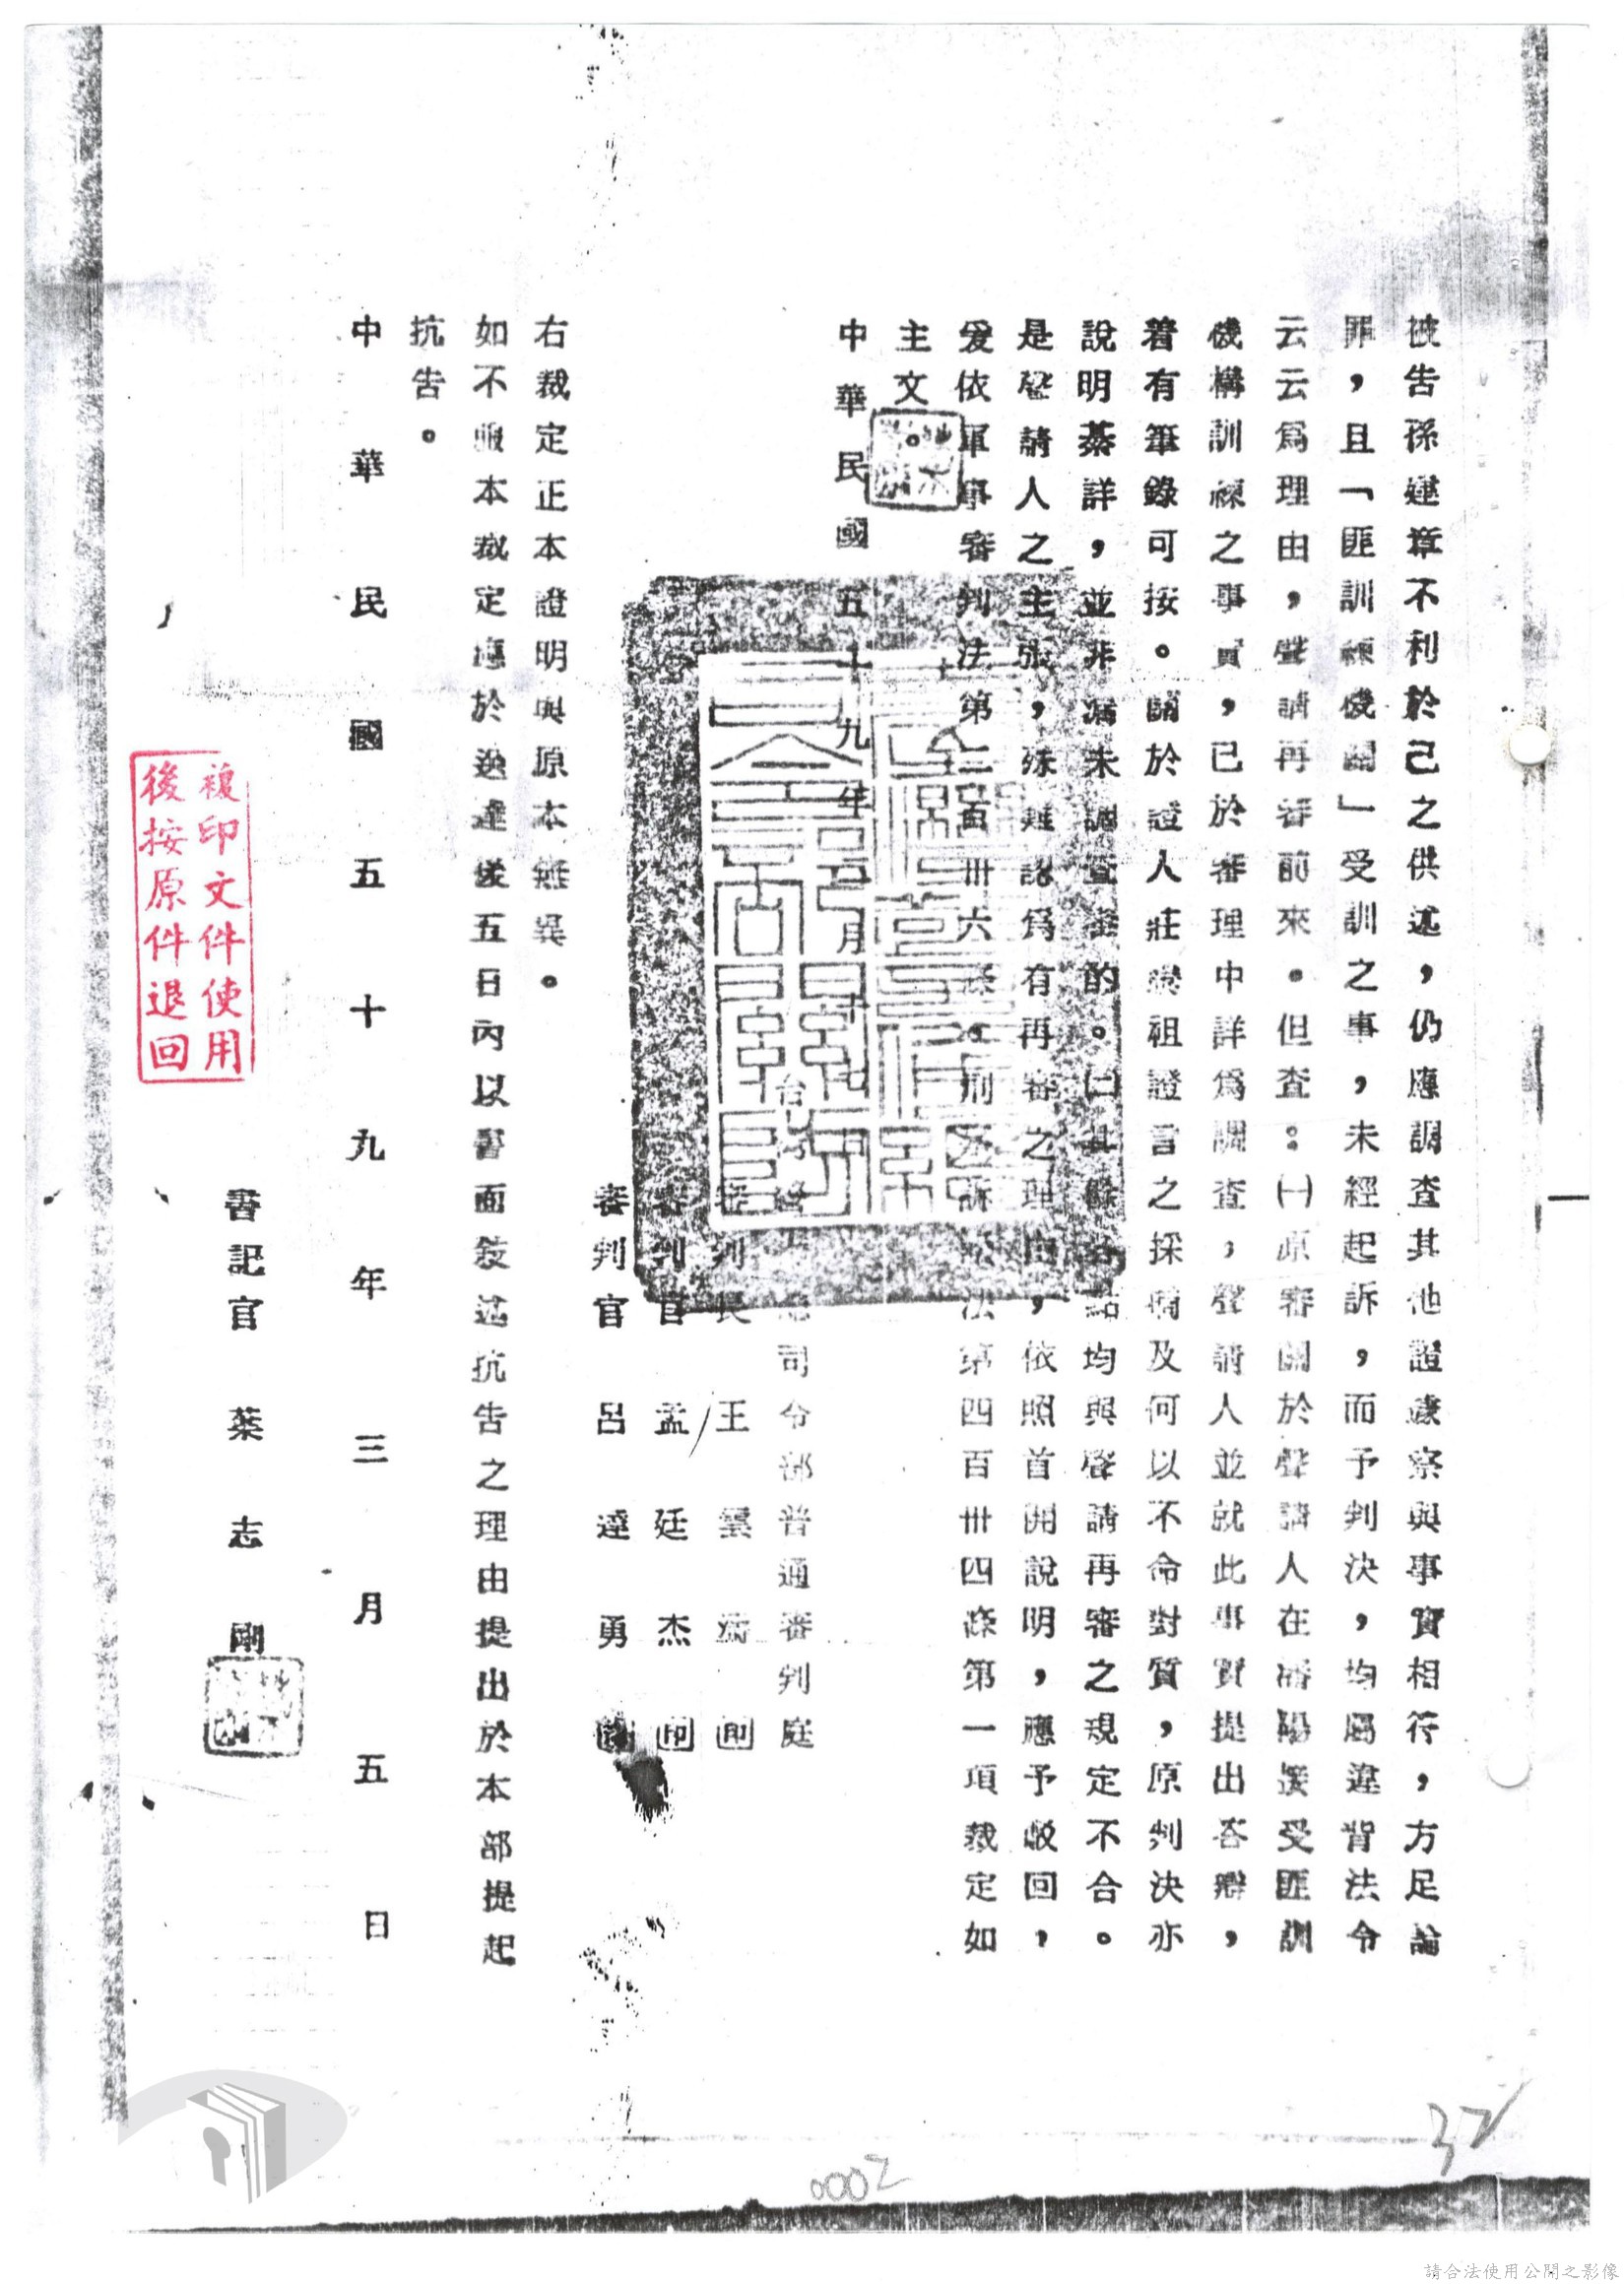 被告孫建章不利於己之供述，仍應調查其他證據察與事實相符，方足論
罪，且「匪訓練機關」受訓之事，未經起訴，而予判決，均屬違背法令
云云為理由，聲請再審前來。但查：㈠原審關於聲請人在瀋陽接受匪訓
機構訓練之事實，已於審理中詳為調查，聲請人並就此事實提出答辯，
着有筆錄可按。關於證人莊 祖證言之採 及何以不命對質，原判決亦
說明綦詳，並非漏未調查 的。 其餘各點均與聲請再審之規定不合。
是聲請人之主張，殊難認為有再審之理由，依照首開說明，應予駁回，
爰依軍事審判法第二百卅六條。刑事訴訟法第四百卅四條第一項裁定如
主文。
中華民國五十九年二月十 日
台灣警 總司令部普通審判庭
審判長 王雲 印
審判官 孟廷杰 印
審判官 呂達勇 印
右裁定正本證明與原本無異。
如不服本裁定應於送達後五日內以書面敘述抗告之理由提出於本部提起
抗告。
中華民國五十九年三月五日
書記官 葉志剛
複印文件使用
後按原件退回
0002
37
請合法使用公開之影像